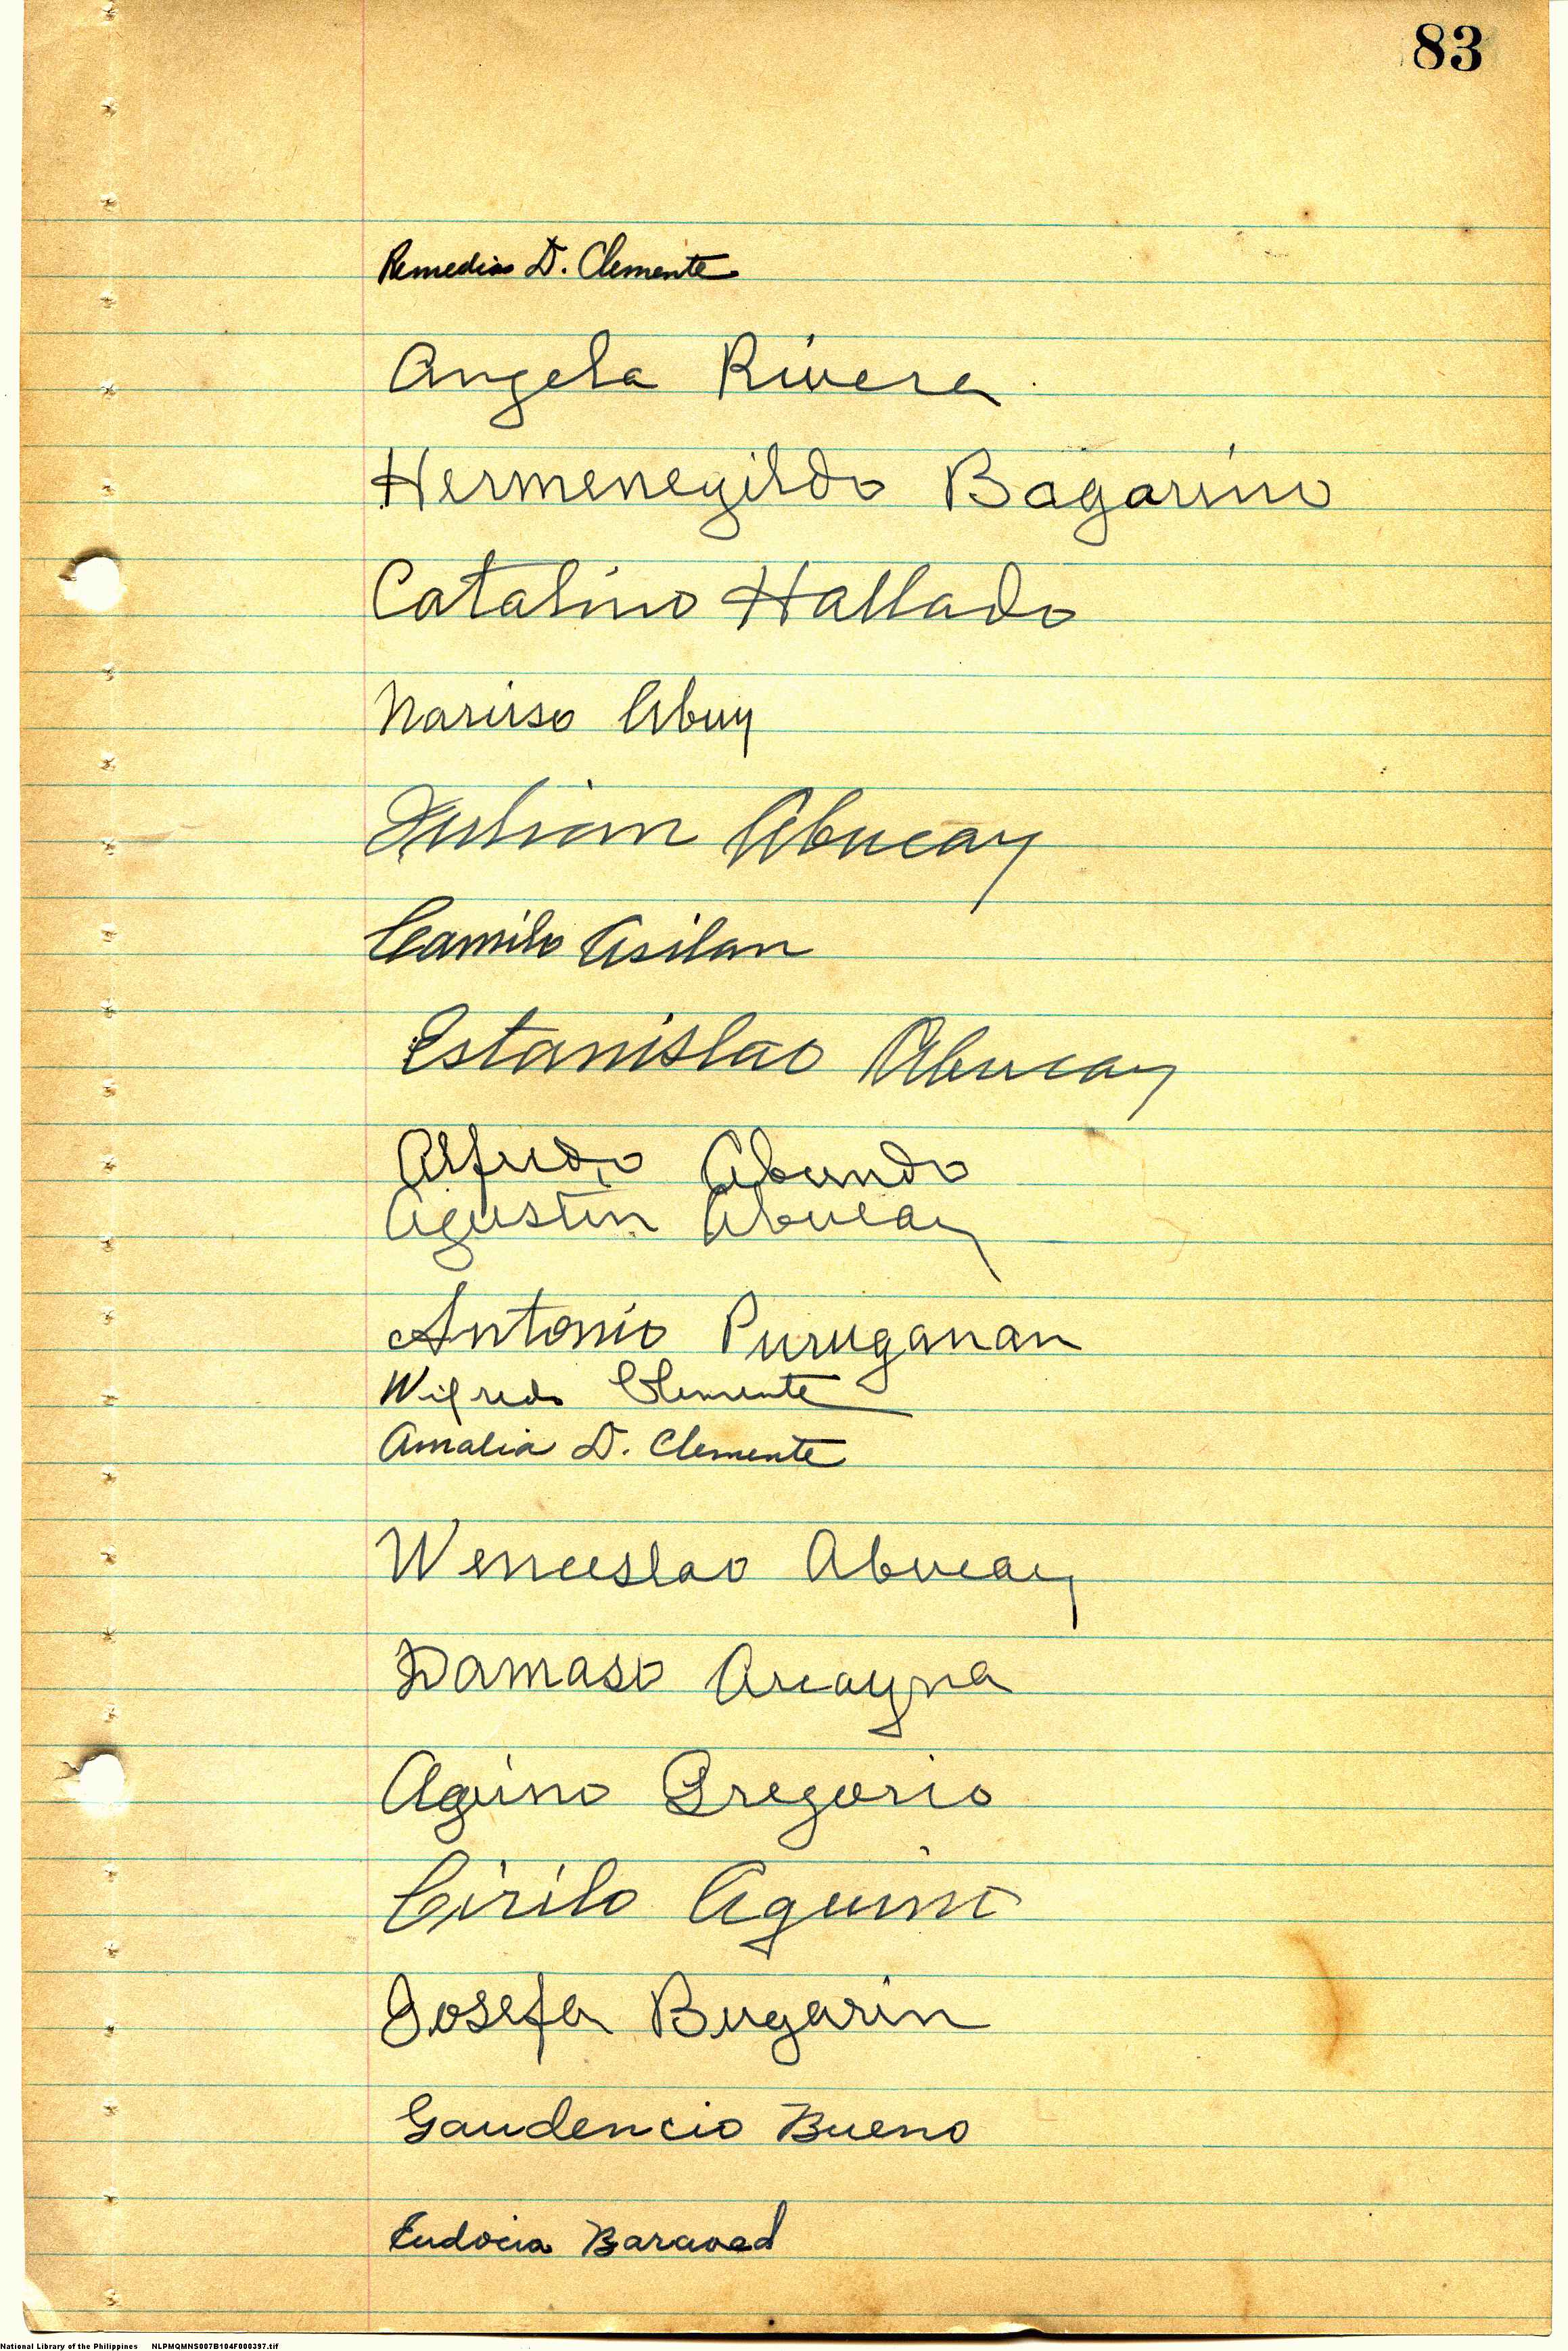 83
Remedios D. Clemente
Angela Rivera
Hermenegildo Bagarino
Catalino Hallado
Narciso Abuy
Julian Abucay
Camilo Asilan
Estanislao Abucay
Alfredo Abundo
Agustin Abucay
Antonio Puruganan
Wilfredo Clemente
Amalia D. Clemente
Wenceslao Abucay
Damaso Arcayna
Aquino Gregorio
Cirilo Aquino
Josefa Bugarin
Gaudencio Bueno
Eudocia Baraoed
National Library of the Philippines NLPMQMNS007B104F000397.tif